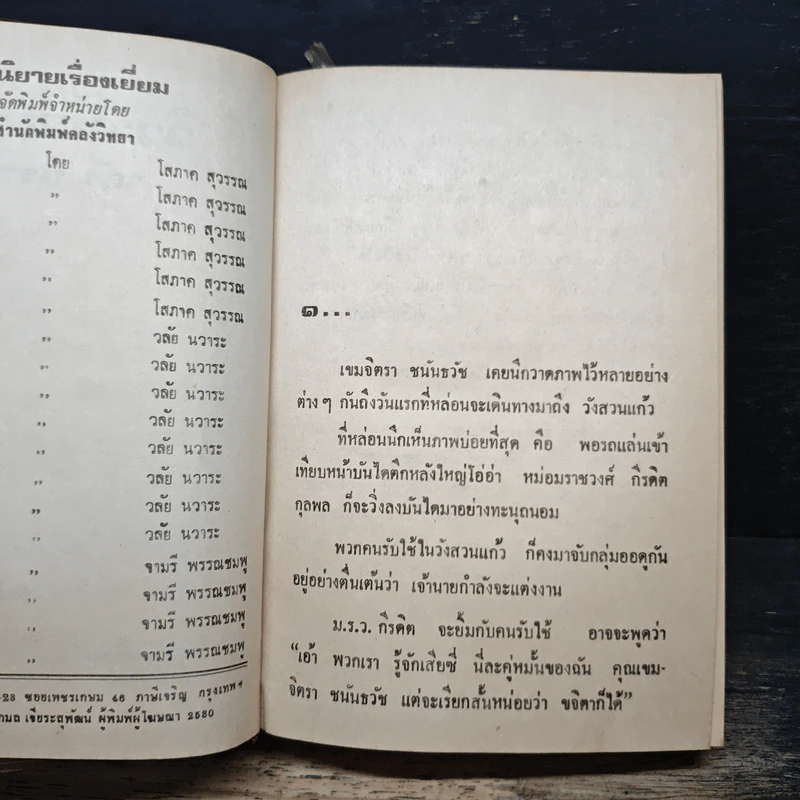 นิยายเรื่องเยี่ยม
จัดพิมพ์จำหน่ายโดย
สำนักพิมพ์คลังวิทยา
โดย โสภาค สุวรรณ
" โสภาค สุวรรณ
" โสภาค สุวรรณ
" โสภาค สุวรรณ
" โสภาค สุวรรณ
" โสภาค สุวรรณ
" วลัย นวาระ
" วลัย นวาระ
" วลัย นวาระ
" วลัย นวาระ
" วลัย นวาระ
" วลัย นวาระ
" วลัย นวาระ
" วลัย นวาระ
" จามรี พรรณชมพู
" จามรี พรรณชมพู
" จามรี พรรณชมพู
" จามรี พรรณชมพู
-23 ซอยเพชรเกษม 46 ภาษีเจริญ กรุงเทพฯ
เจียระสุพัฒน์ ผู้พิมพ์ผู้โฆษณา 2530
๑...
เขมจิตรา ชนันธวัช เคยนึกวาดภาพไว้หลายอย่าง
ต่างๆ กันถึงวันแรกที่หล่อนจะเดินทางมาถึง วังสวนแก้ว
ที่หล่อนนึกเห็นภาพบ่อยที่สุด คือ พอรถแล่นเข้า
เทียบหน้าบันไดตึกหลังใหญ่โอ่อ่า หม่อมราชวงศ์ กีรติต
กุลพล ก็จะวิ่งลงบันไดมาอย่างทะนุถนอม
พวกคนรับใช้ในวังสวนแก้ว ก็คงมาจับกลุ่มออดูกัน
อยู่อย่างตื่นเต้นว่า เจ้านายกำลังจะแต่งงาน
ม.ร.ว. กีรติต จะยิ้มกับคนรับใช้ อาจจะพูดว่า
"เอ้า พวกเรา รู้จักเสียซี่ นี่ละคู่หมั้นของฉัน คุณเขม-
จิตรา ชนันธวัช แต่จะเรียกสั้นหน่อยว่า ขจิตาก็ได้"